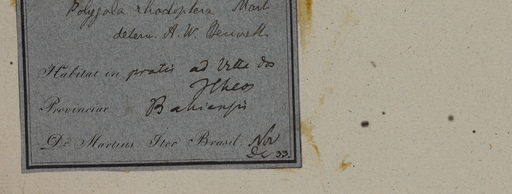 Polygala rhodoptera Mart.
determ. A. W. Bennett
Habitat in pratis ad Villa dos
Ilheos
Provinciae Bahiensis
Dr Martius Iter Brasil. Nov
Dc 33.